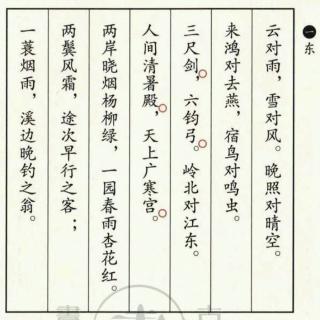 一东
云对雨，雪对风。晚照对晴空。
来鸿对去燕，宿鸟对鸣虫。
三尺剑，六钧弓。岭北对江东。
人间清暑殿，天上广寒宫。
两岸晓烟杨柳绿，一园春雨杏花红。
两鬓风霜，途次早行之客；
一蓑烟雨，溪边晚钓之翁。